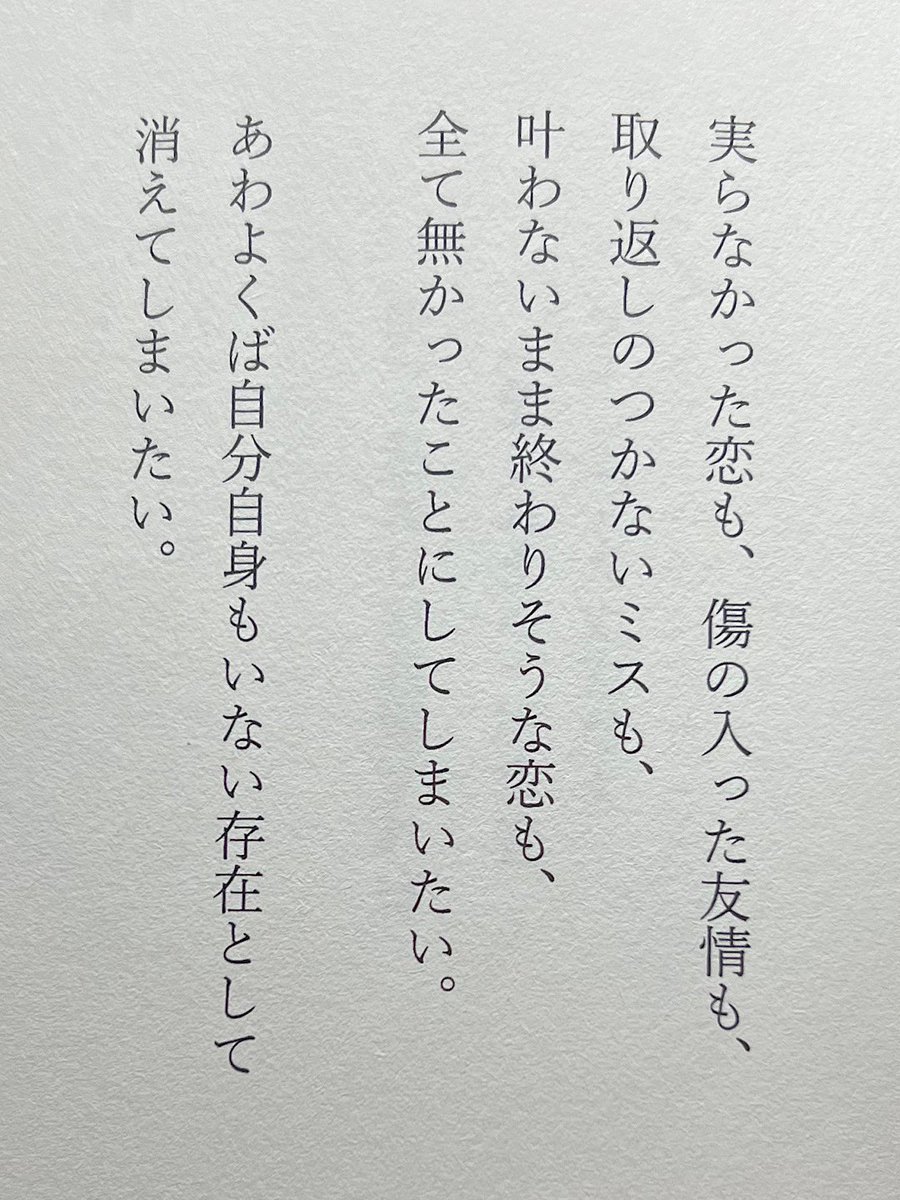 実らなかった恋も、傷の入った友情も、
取り返しのつかないミスも、
叶わないまま終わりそうな恋も、
全て無かったことにしてしまいたい。
あわよくば自分自身もいない存在として
消えてしまいたい。